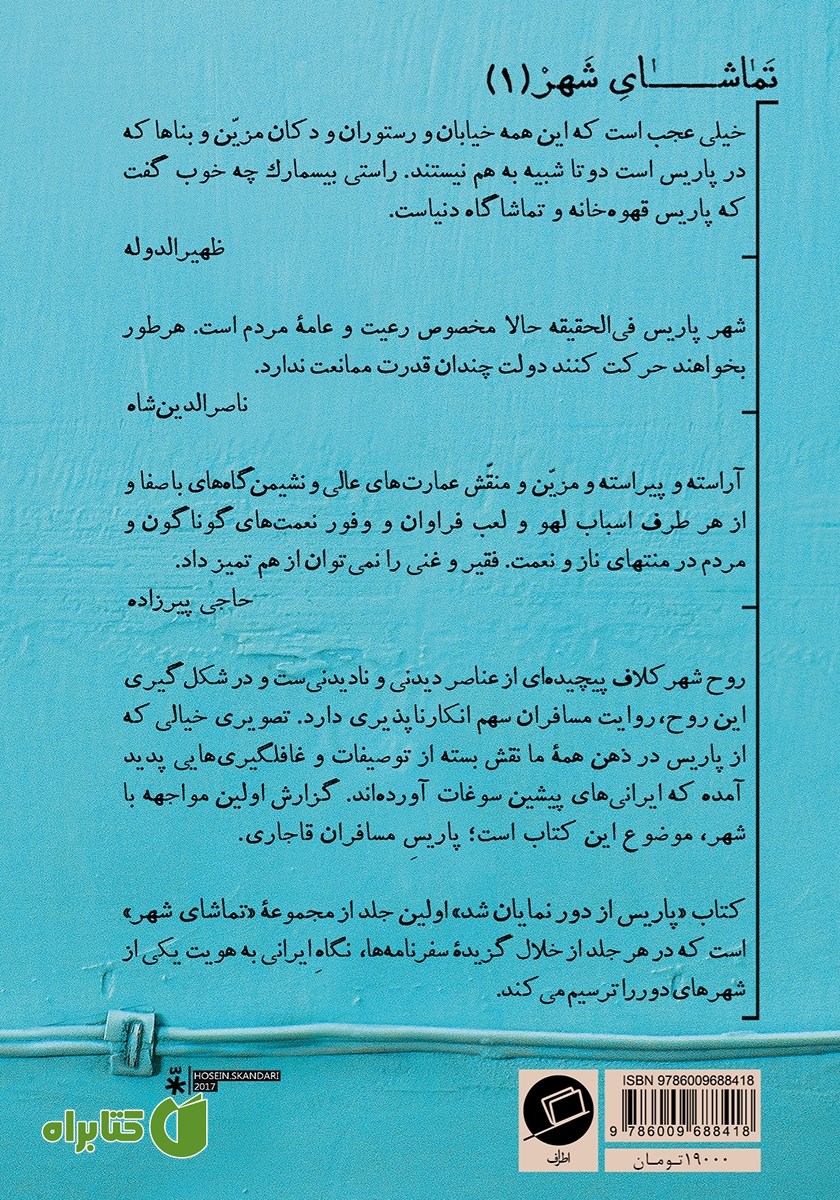 تَماشــــــای شَهرْ (۱)
خیلی عجب است که این همه خیابان و رستوران و دکان مزیّن و بناها که
در پاریس است دو تا شبیه به هم نیستند. راستی بیسمارك چه خوب گفت
که پاریس قهوه‌خانه و تماشاگاه دنیاست.
ظهیرالدوله
شهر پاریس فی‌الحقیقه حالا مخصوص رعیت و عامهٔ مردم است. هرطور
بخواهند حرکت کنند دولت چندان قدرت ممانعت ندارد.
ناصرالدین‌شاه
آراسته و پیراسته و مزیّن و منقّش عمارت‌های عالی و نشیمن‌گاه‌های باصفا و
از هر طرف اسباب لهو و لعب فراوان و وفور نعمت‌های گوناگون و
مردم در منتهای ناز و نعمت. فقیر و غنی را نمی‌توان از هم تمیز داد.
حاجی پیرزاده
روح شهر کلاف پیچیده‌ای از عناصر دیدنی و نادیدنی‌ست و در شکل گیری
این روح، روایت مسافران سهم انکارناپذیری دارد. تصویری خیالی که
از پاریس در ذهن همهٔ ما نقش بسته از توصیفات و غافلگیری‌هایی پدید
آمده که ایرانی‌های پیشین سوغات آورده‌اند. گزارش اولین مواجهه با
شهر، موضوع این کتاب است؛ پاریسِ مسافران قاجاری.
کتاب «پاریس از دور نمایان شد» اولین جلد از مجموعهٔ «تماشای شهر»
است که در هر جلد از خلال گزیدهٔ سفرنامه‌ها، نگاهِ ایرانی به هویت یکی از
شهرهای دور را ترسیم می‌کند.
HOSEIN.SKANDARI
2017
کتابراه
اطراف
ISBN 9786009688418
9 786009 688418
۱۹۰۰۰ تومان